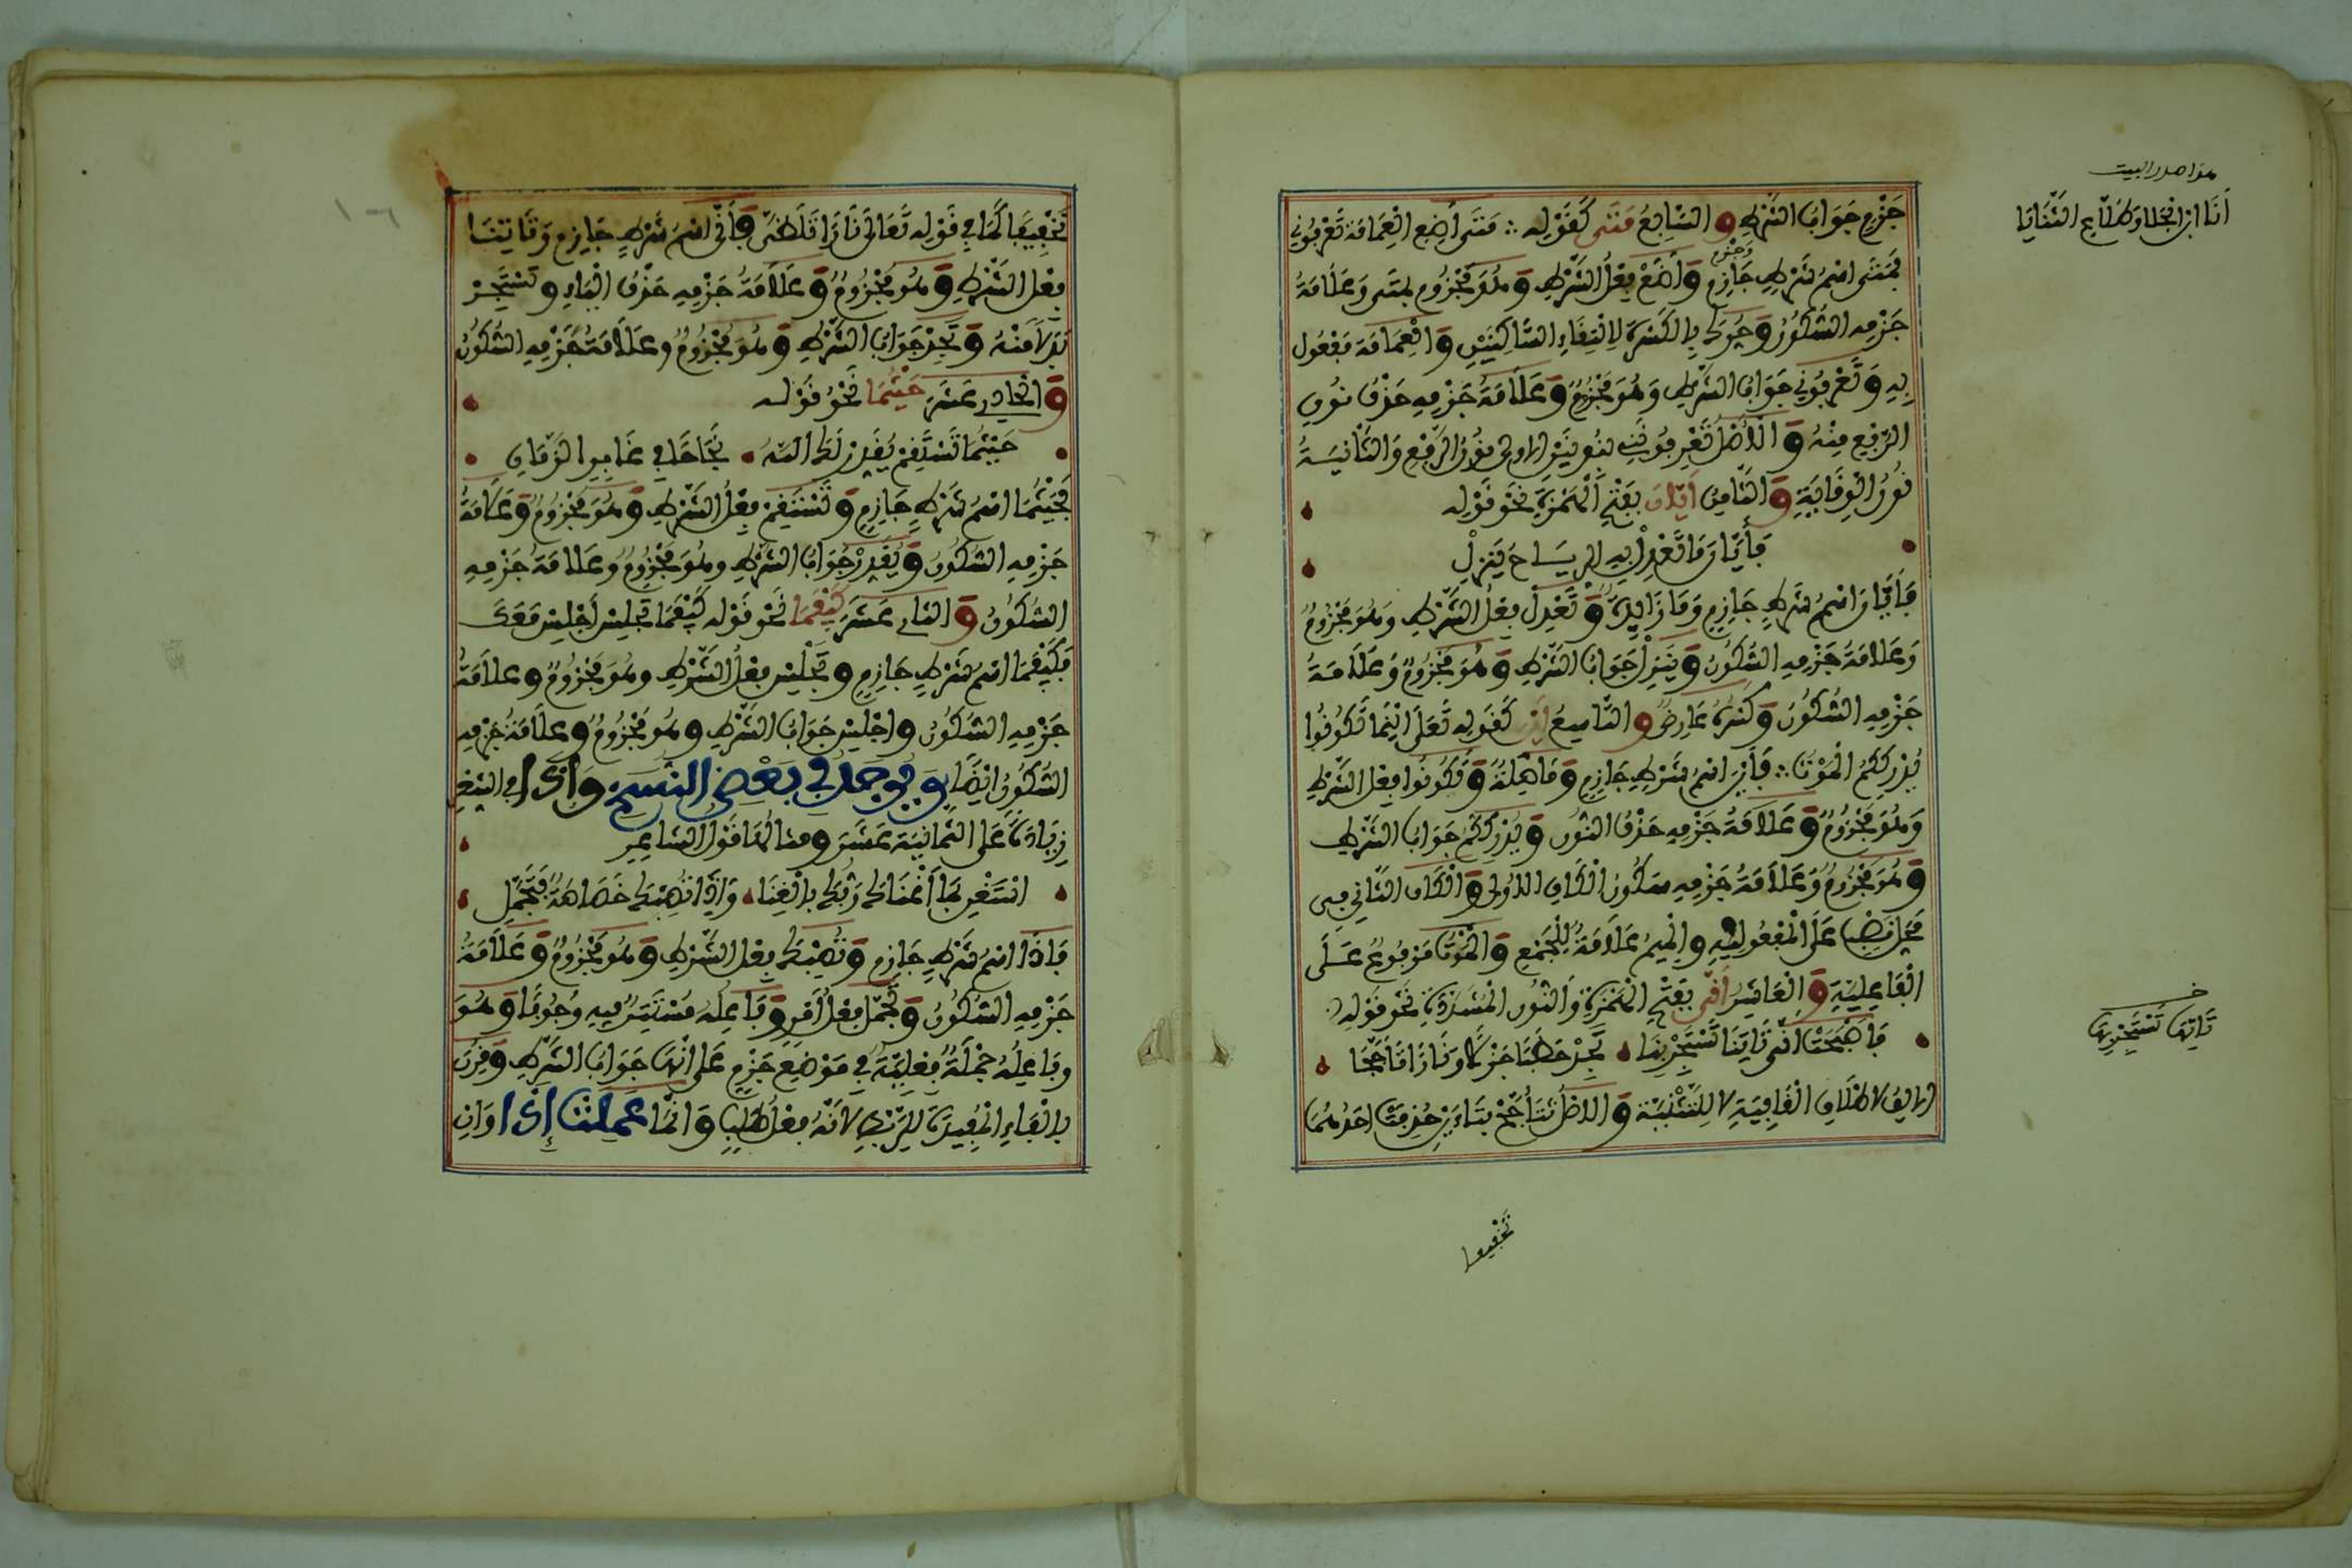 جَزْمِ جَوَابُ الشَّرْطِ وَ السَّابِعُ مَتَى كَقَوْلِه ∴ مَتَى أَضِعِ الْعِمَامَةَ تَعْرِفُونِي
فَمَتَى اسْمُ شَرْطٍ جَازِمٍ وَأَضَعْ فِعْلُ الشَّرْطِ وَهُوَ مَجْزُومٌ بمَتَى وَعَلَامَةُ
جَزْمِهِ السُّكُونُ وَحُرِّكَ بِالْكَسْرَةِ لِالْتِقَاءِ السَّاكِنَيْنِ وَالْعِمَامَةَ مَفْعُول
بِهِ وَتَعْرِفُونِي جَوَابُ الشَّرْطِ وَهُوَ مَجْزُومٌ وَعَلَامَةُ جَزْمِهِ حَذْفُ نُونِ
الرَّفْعِ مِنْهُ وَالْأَصْلُ تَعْرِفُونَنِي بنُونَيْنِ الاولى نُونُ الرَّفْعِ وَالثَّانِيَةُ
نُونُ الْوِقَايَةِ وَالثَّامِنُ أَيَّانَ بِفَتْحِ الْهَمْزَةِ نَحْوُ قَوْلِه
فَأَيَّانَ مَا تَعْدِلْ بِهِ الرِّيَاحُ يَنْزِلْ
فَأَيَّانَ اسْمُ شَرْطٍ جَازِمٍ وَمَا زَائِدَةٌ وَتَعْدِلْ فِعْلُ الشَّرْطِ وَهُوَ مَجْزُومٌ
وَعَلَامَةُ جَزْمِهِ السُّكُونُ وَيَنْزِلْ جَوَابُ الشَّرْطِ وَهُوَ مَجْزُومٌ وَعَلَامَةُ
جَزْمِهِ السُّكُونُ وَكَسْرُهُ عَارِضٌ وَ التَّاسِعُ أَيْنَ كَقَوْلِهِ تَعَلَى أَيْنَمَا تَكُونُوا
يُدْرِككُّمُ الْمَوْتُ ∴ فَأَيْنَ اسْمُ شَرْطٍ جَازِمٍ وَمَا صِلَةٌ وَتَكُونُوا فِعْلُ الشَّرْطِ
وَهُوَ مَجْزُومٌ وَعَلَامَةُ جَزْمِهِ حَذْفُ النُّونِ وَيُدْرِكْكُمُ جَوَابُ الشَّرْطِ
وَهُوَ مَجْزُومٌ وَعَلَامَةُ جَزْمِهِ سُكُونُ الْكَافِ الْاُولَى وَالْكَافُ الثَّانِي فِي
مَحَلِّ نَصْبٍ عَلَى الْمَفْعُولِيَّةِ وَالْمِيمُ عَلَامَةٌ لِلْجَمْعِ وَالْمَوْتُ مَرْفُوعٌ عَلَى
الْفَاعِلِيَّةِ وَالْعَاشِرُ أَنَّى بِفَتْحِ الْهَمْزَةِ وَالنُّونِ الْمُشَدَّدَةِ نَحْوُ قَوْلِهِ
فَأَصْبَحْتَ أَنَّى تَاتِنَا تَسْتَجِرْ بِنَا تَجِدْ حَطَبًا جَزْلًا وَنَارًا تَأَجَّجَا
الالِفُ لاطْلَاقِ الْقَافِيَةِ لا لِلتَّثْنِيَةِ وَالاصْلُ تَتَأَجَّجْ بتَاءَيْنِ حُذِفَتْ احَدُهُمَا
تخفيفا
هذا صدر البيت
أنَا ابْنُ جَلَا وَطَلَّاعِ الثَّنَايَا
خ
تَاتِهَا تَسْتَجِرْ بِهَا
تَخْفِيفًا كَمَا فِي قَوْلِه تَعَالَى نَارًا تَلَظَّى وَأَنَّى اسْمُ شَرْطٍ جَازِمٍ وَتَاتِنَا
فِعْلُ الشَّرْطِ وَهُوَ مَجْزُومٌ وَعَلَامَةُ جَزْمِهِ حَذْفُ الْيَاءِ وتَسْتَجِرْ
بَدَلا مِنْهُ وَتَجِدْ جَوَابُ الشَّرْطِ وَهُوَ مَجْزُومٌ وعَلَامَةُ جَزْمِهِ السُّكُونُ
وَالْحَادِي عَشَرَ حَيْثُمَا نَحْوُ قَوْلِه
حَيْثُمَا تَسْتَقِمْ يُقَدِّرْ لَكَ اللهُ نَجَاحًا فِي غَابِرِ الزَّمَانِ
فَحَيْثُمَا اسْمُ شَرْطٍ جَازِمٍ وَتَسْتَقِمْ فِعْلُ الشَّرْطِ وَهُوَ مَجْزُومٌ وَعَلَامَةُ
جَزْمِهِ السُّكُونُ وَيُقَدِّرْ جَوَابُ الشَّرْطِ وهُوَ مَجْزُومٌ وعَلَامَةُ جَزْمِهِ
السُّكُونُ وَالثَّانِي عَشَرَ كَيْفَمَا نَحْوُ قَوْلِه كَيْفَمَا تَجْلِسْ أَجْلِسْ مَعَكَ
فَكَيْفَمَا اسْمُ شَرْطٍ جَازِمٍ وتَجْلِسْ فِعْلُ الشَّرْطِ وهُوَ مَجْزُومٌ وعَلَامَةُ
جَزْمِهِ السُّكُونُ وأَجْلِسْ جَوَابُ الشَّرْطِ وهُوَ مَجْزُومٌ وعَلَامَةُ جَزْمِهِ
السُّكُونُ أيْضًا وَيُوجَدُ فِي بَعْضِ النُّسَخِ وَإِذَا فِي الشِّعْرِ
زِيَادَةً عَلَى الثَّمَانِيَةَ عَشَرَ ومثالهَا قَوْلُ الشَّاعِرِ
اسْتَغْنِ مَا أَغْنَاكَ رَبُّكَ بِالْغِنَا وَإِذَا تُصِبْكَ خَصَاصَةٌ فَتَجَمَّلِ
فَاذَا اسْمُ شَرْطٍ جَازِمٍ وَتُصِبْكَ فِعْلُ الشَّرْطِ وَهُوَ مَجْزُومٌ وَعَلَامَةُ
جَزْمِهِ السُّكُونُ وَتَجَمَّلْ فِعْلُ أَمْرٍ وَفَاعِلُهُ مُسْتَتِرٌ فِيهِ وُجُوبًا وَهُوَ
وفَاعِلُهُ جُمْلَةٌ فِعْلِيَّةٌ فِي مَوْضِعِ جَزْمٍ عَلَى أَنَّهَا جَوَابُ الشَّرْطِ وَقُرِنَ
بِالْفَاءِ الْمُفِيدَةِ لِلرَّبْطِ لأنَّهُ فِعْلُ طَلَبٍ وَانَّمَا عَمِلَتْ إِذَا وَإِن